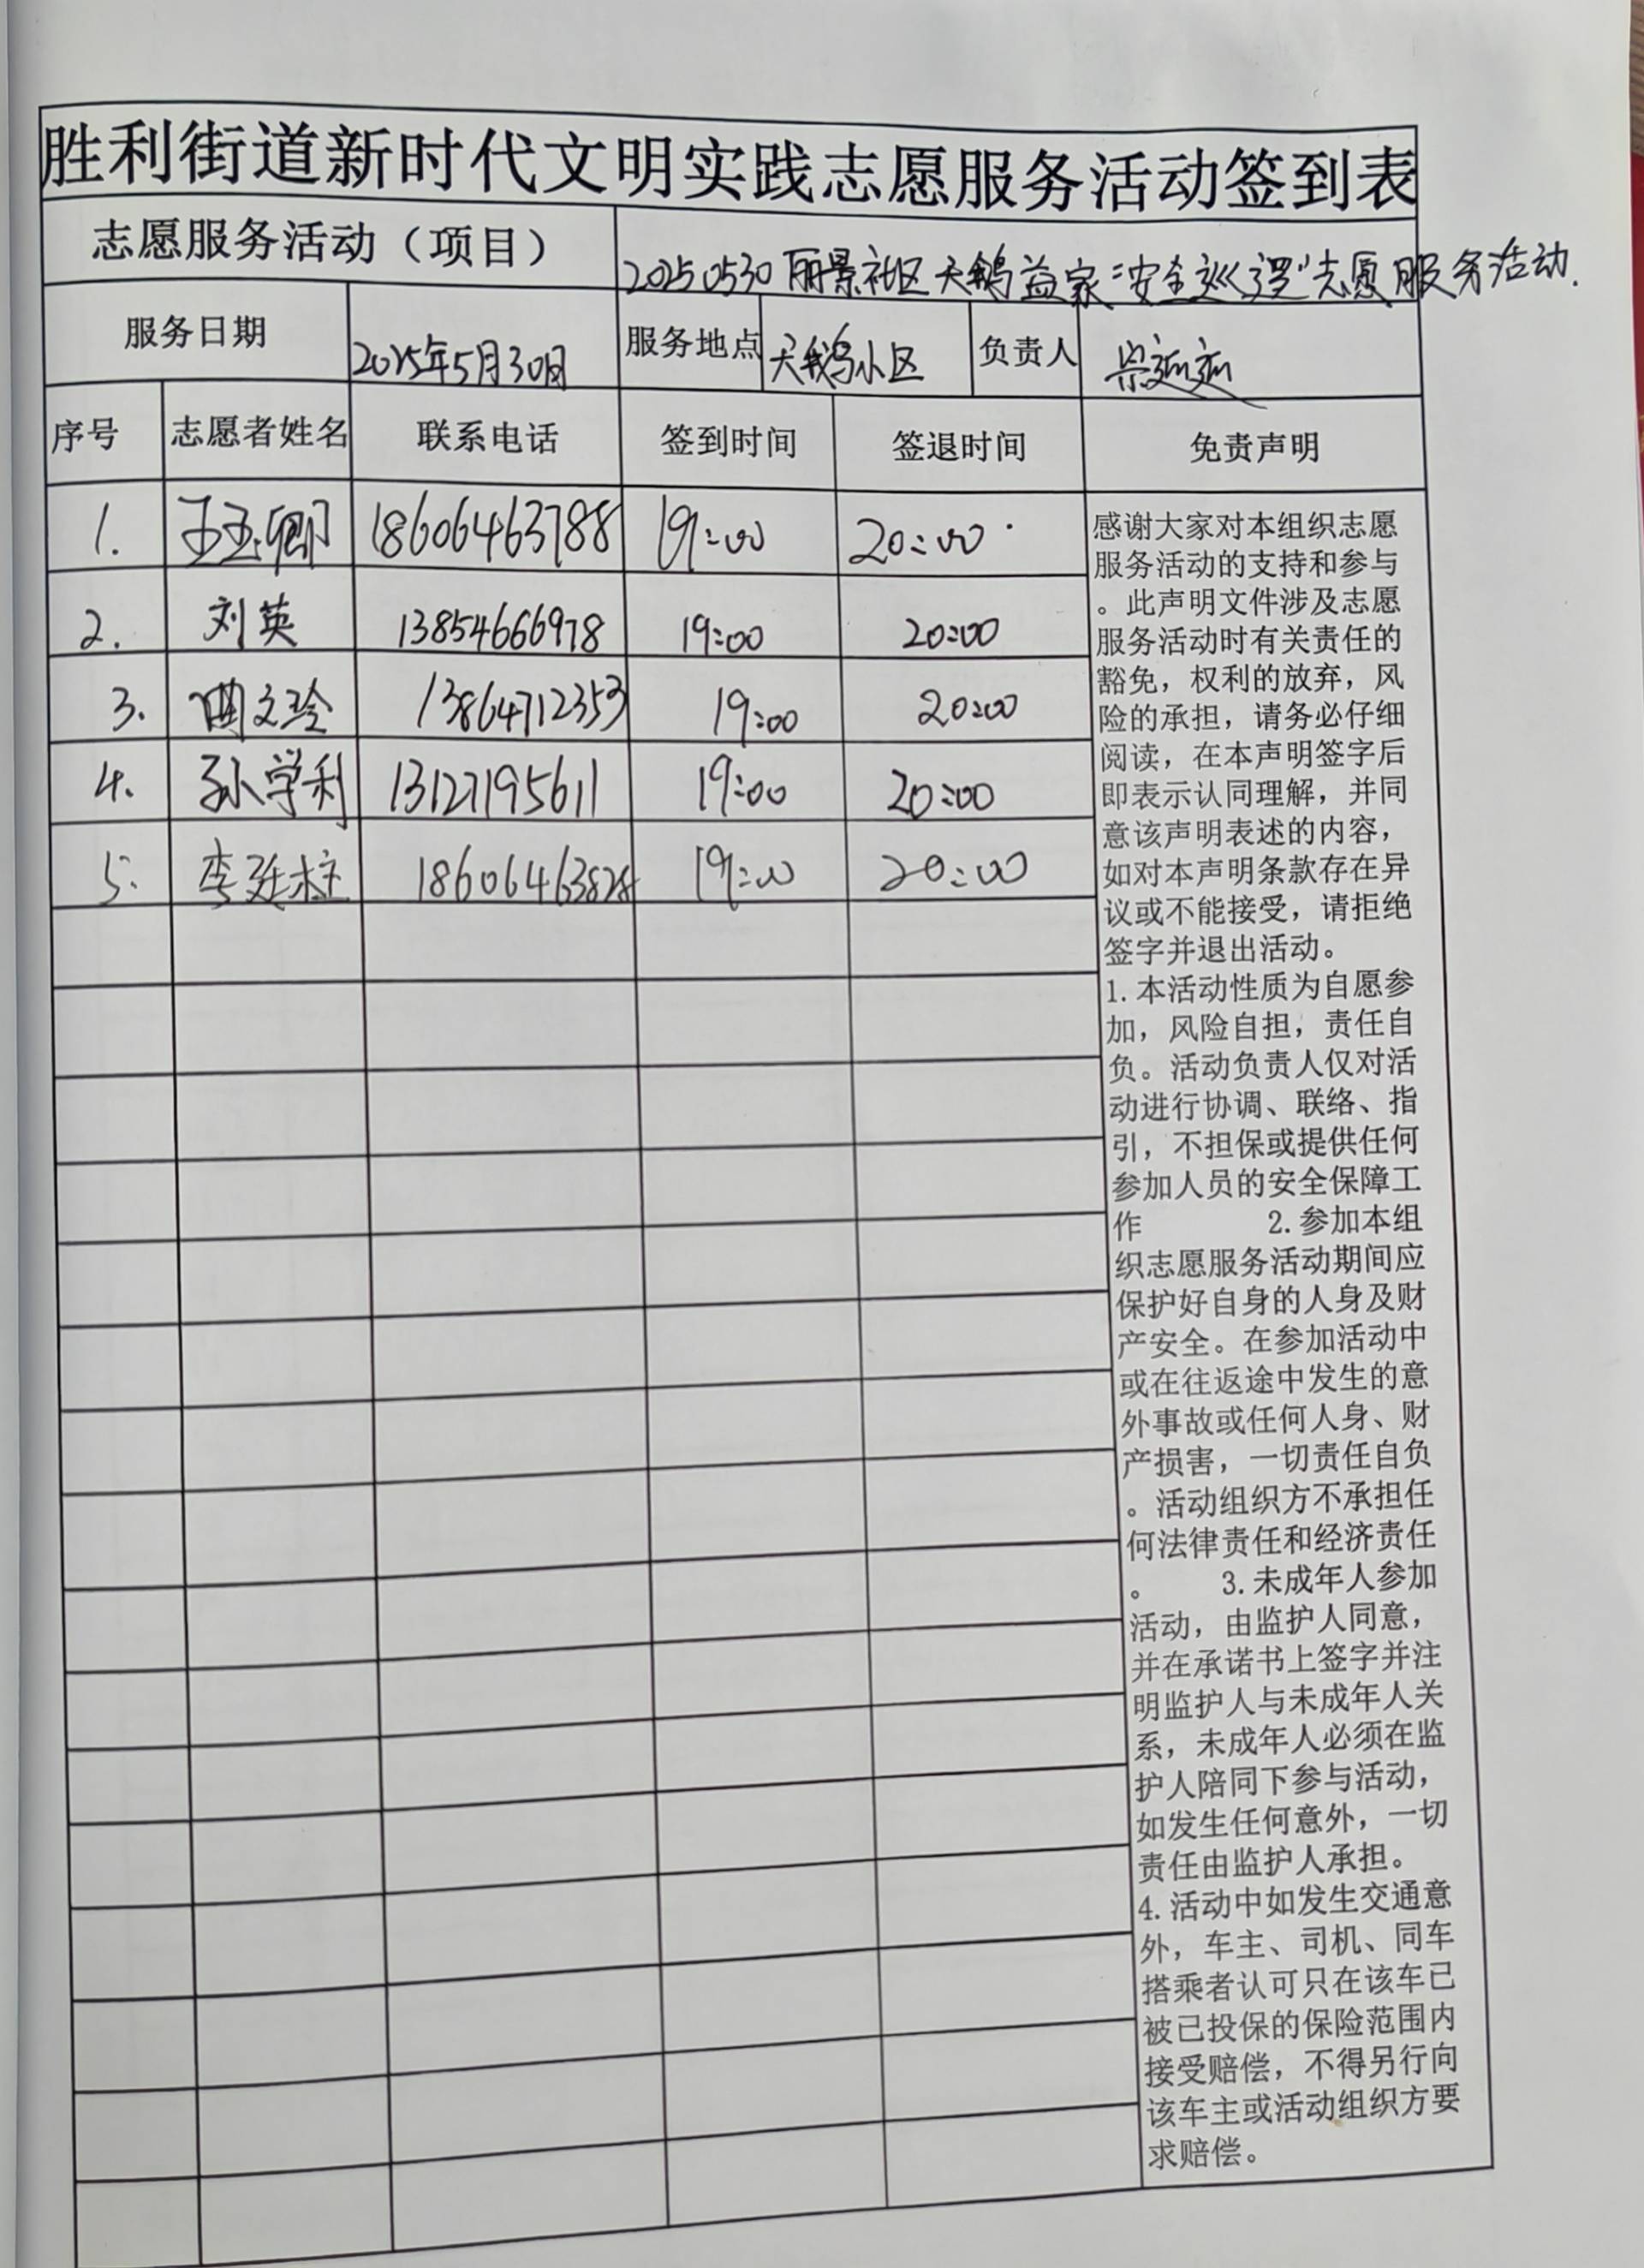 胜利街道新时代文明实践志愿服务活动签到表
志愿服务活动（项目） 20250530丽景社区天鹅益家"安全巡逻"志愿服务活动.
服务日期 2025年5月30日 服务地点 天鹅小区 负责人
序号 志愿者姓名 联系电话 签到时间 签退时间 免责声明
1. 王玉卿 18606463788 19:00 20:00
2. 刘英 13854666978 19:00 20:00
3. 文玲 13864712353 19:00 20:00
4. 孙学利 13127195611 19:00 20:00
5. 李廷柱 18606463828 19:00 20:00
感谢大家对本组织志愿
服务活动的支持和参与
。此声明文件涉及志愿
服务活动时有关责任的
豁免，权利的放弃，风
险的承担，请务必仔细
阅读，在本声明签字后
即表示认同理解，并同
意该声明表述的内容，
如对本声明条款存在异
议或不能接受，请拒绝
签字并退出活动。
1.本活动性质为自愿参
加，风险自担，责任自
负。活动负责人仅对活
动进行协调、联络、指
引，不担保或提供任何
参加人员的安全保障工
作 2.参加本组
织志愿服务活动期间应
保护好自身的人身及财
产安全。在参加活动中
或在往返途中发生的意
外事故或任何人身、财
产损害，一切责任自负
。活动组织方不承担任
何法律责任和经济责任
。 3.未成年人参加
活动，由监护人同意，
并在承诺书上签字并注
明监护人与未成年人关
系，未成年人必须在监
护人陪同下参与活动，
如发生任何意外，一切
责任由监护人承担。
4.活动中如发生交通意
外，车主、司机、同车
搭乘者认可只在该车已
被已投保的保险范围内
接受赔偿，不得另行向
该车主或活动组织方要
求赔偿。